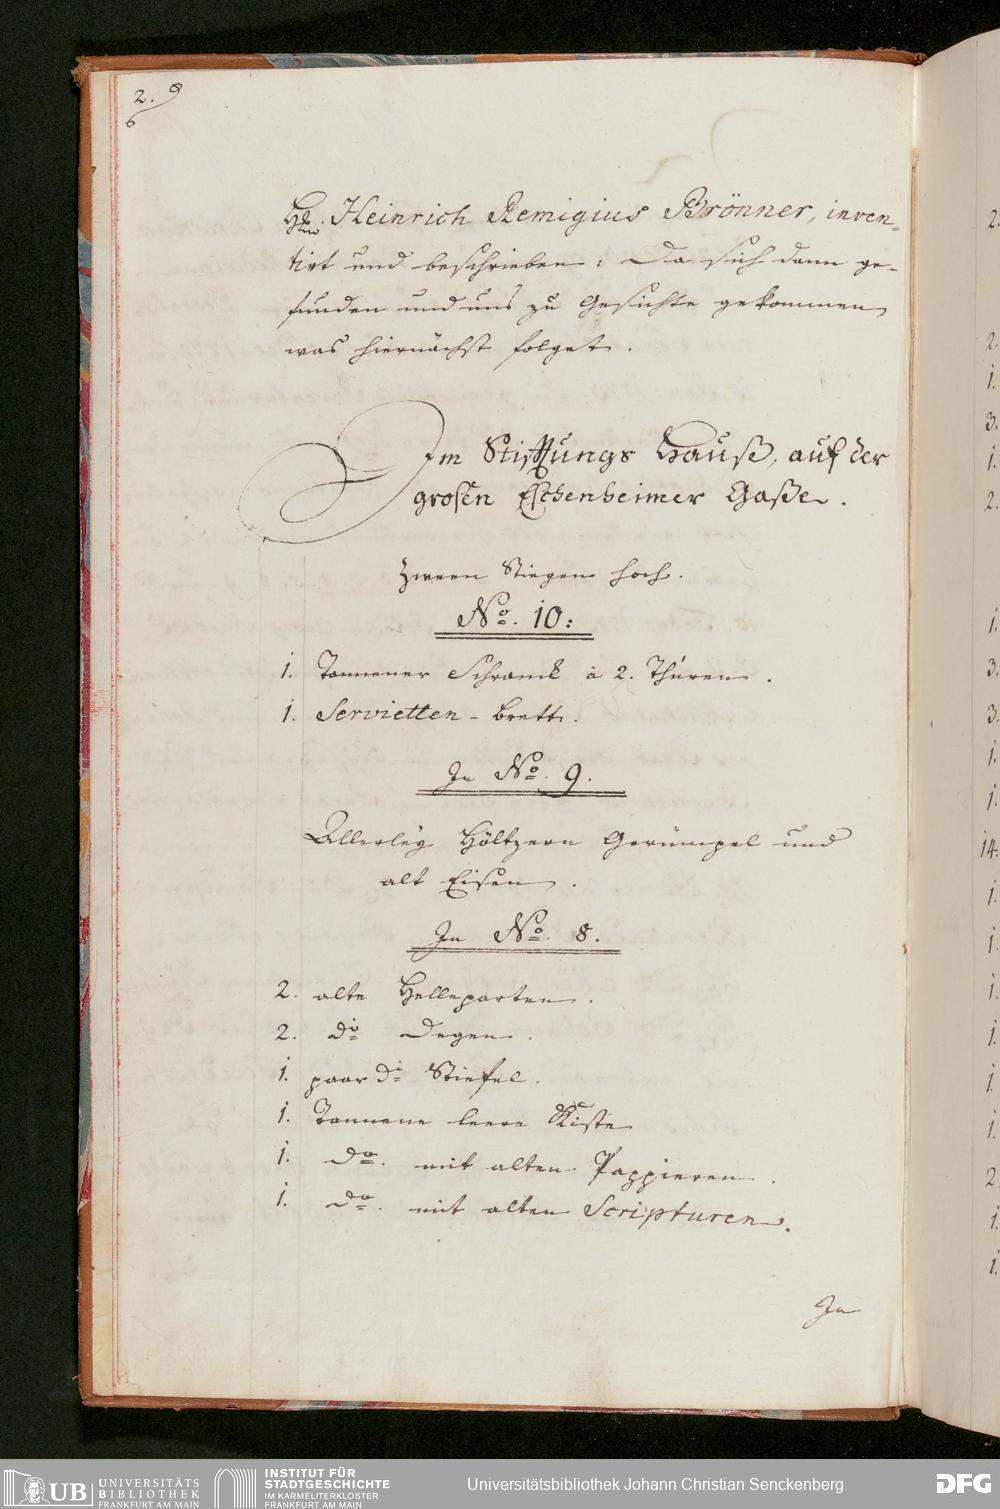 2. 9
6
Hr. Heinrich Remigius Brönner, inven-
tirt und beschrieben: Da sich dann ge-
funden und uns zu Gesichte gekommen,
was hiernächst folget.
Im Stifftungs Hauß, auf der
grosen Eschenheimer Gaße.
Zween Stiegen hoch.
No. 10:
1. Tannener Schranck à 2. Thüren.
1. Servietten-Brett.
In No. 9.
Allerley Höltzern Gerümpel und
alt Eisen.
In No. 8.
2. alte Helleparten.
2. do Degen.
1. paar do Stiefel.
1. Tannene leere Kiste
1. do. mit alten Pappieren.
1. do. mit alten Scripturen.
In
2.
2.
1.
3.
1.
2.
1.
3.
3.
1.
1.
14.
1.
1.
1.
1.
1.
1.
2.
1.
1.
UB UNIVERSITÄTS
BIBLIOTHEK
FRANKFURT AM MAIN
INSTITUT FÜR
STADTGESCHICHTE
IM KARMELITERKLOSTER
FRANKFURT AM MAIN
Universitätsbibliothek Johann Christian Senckenberg
DFG